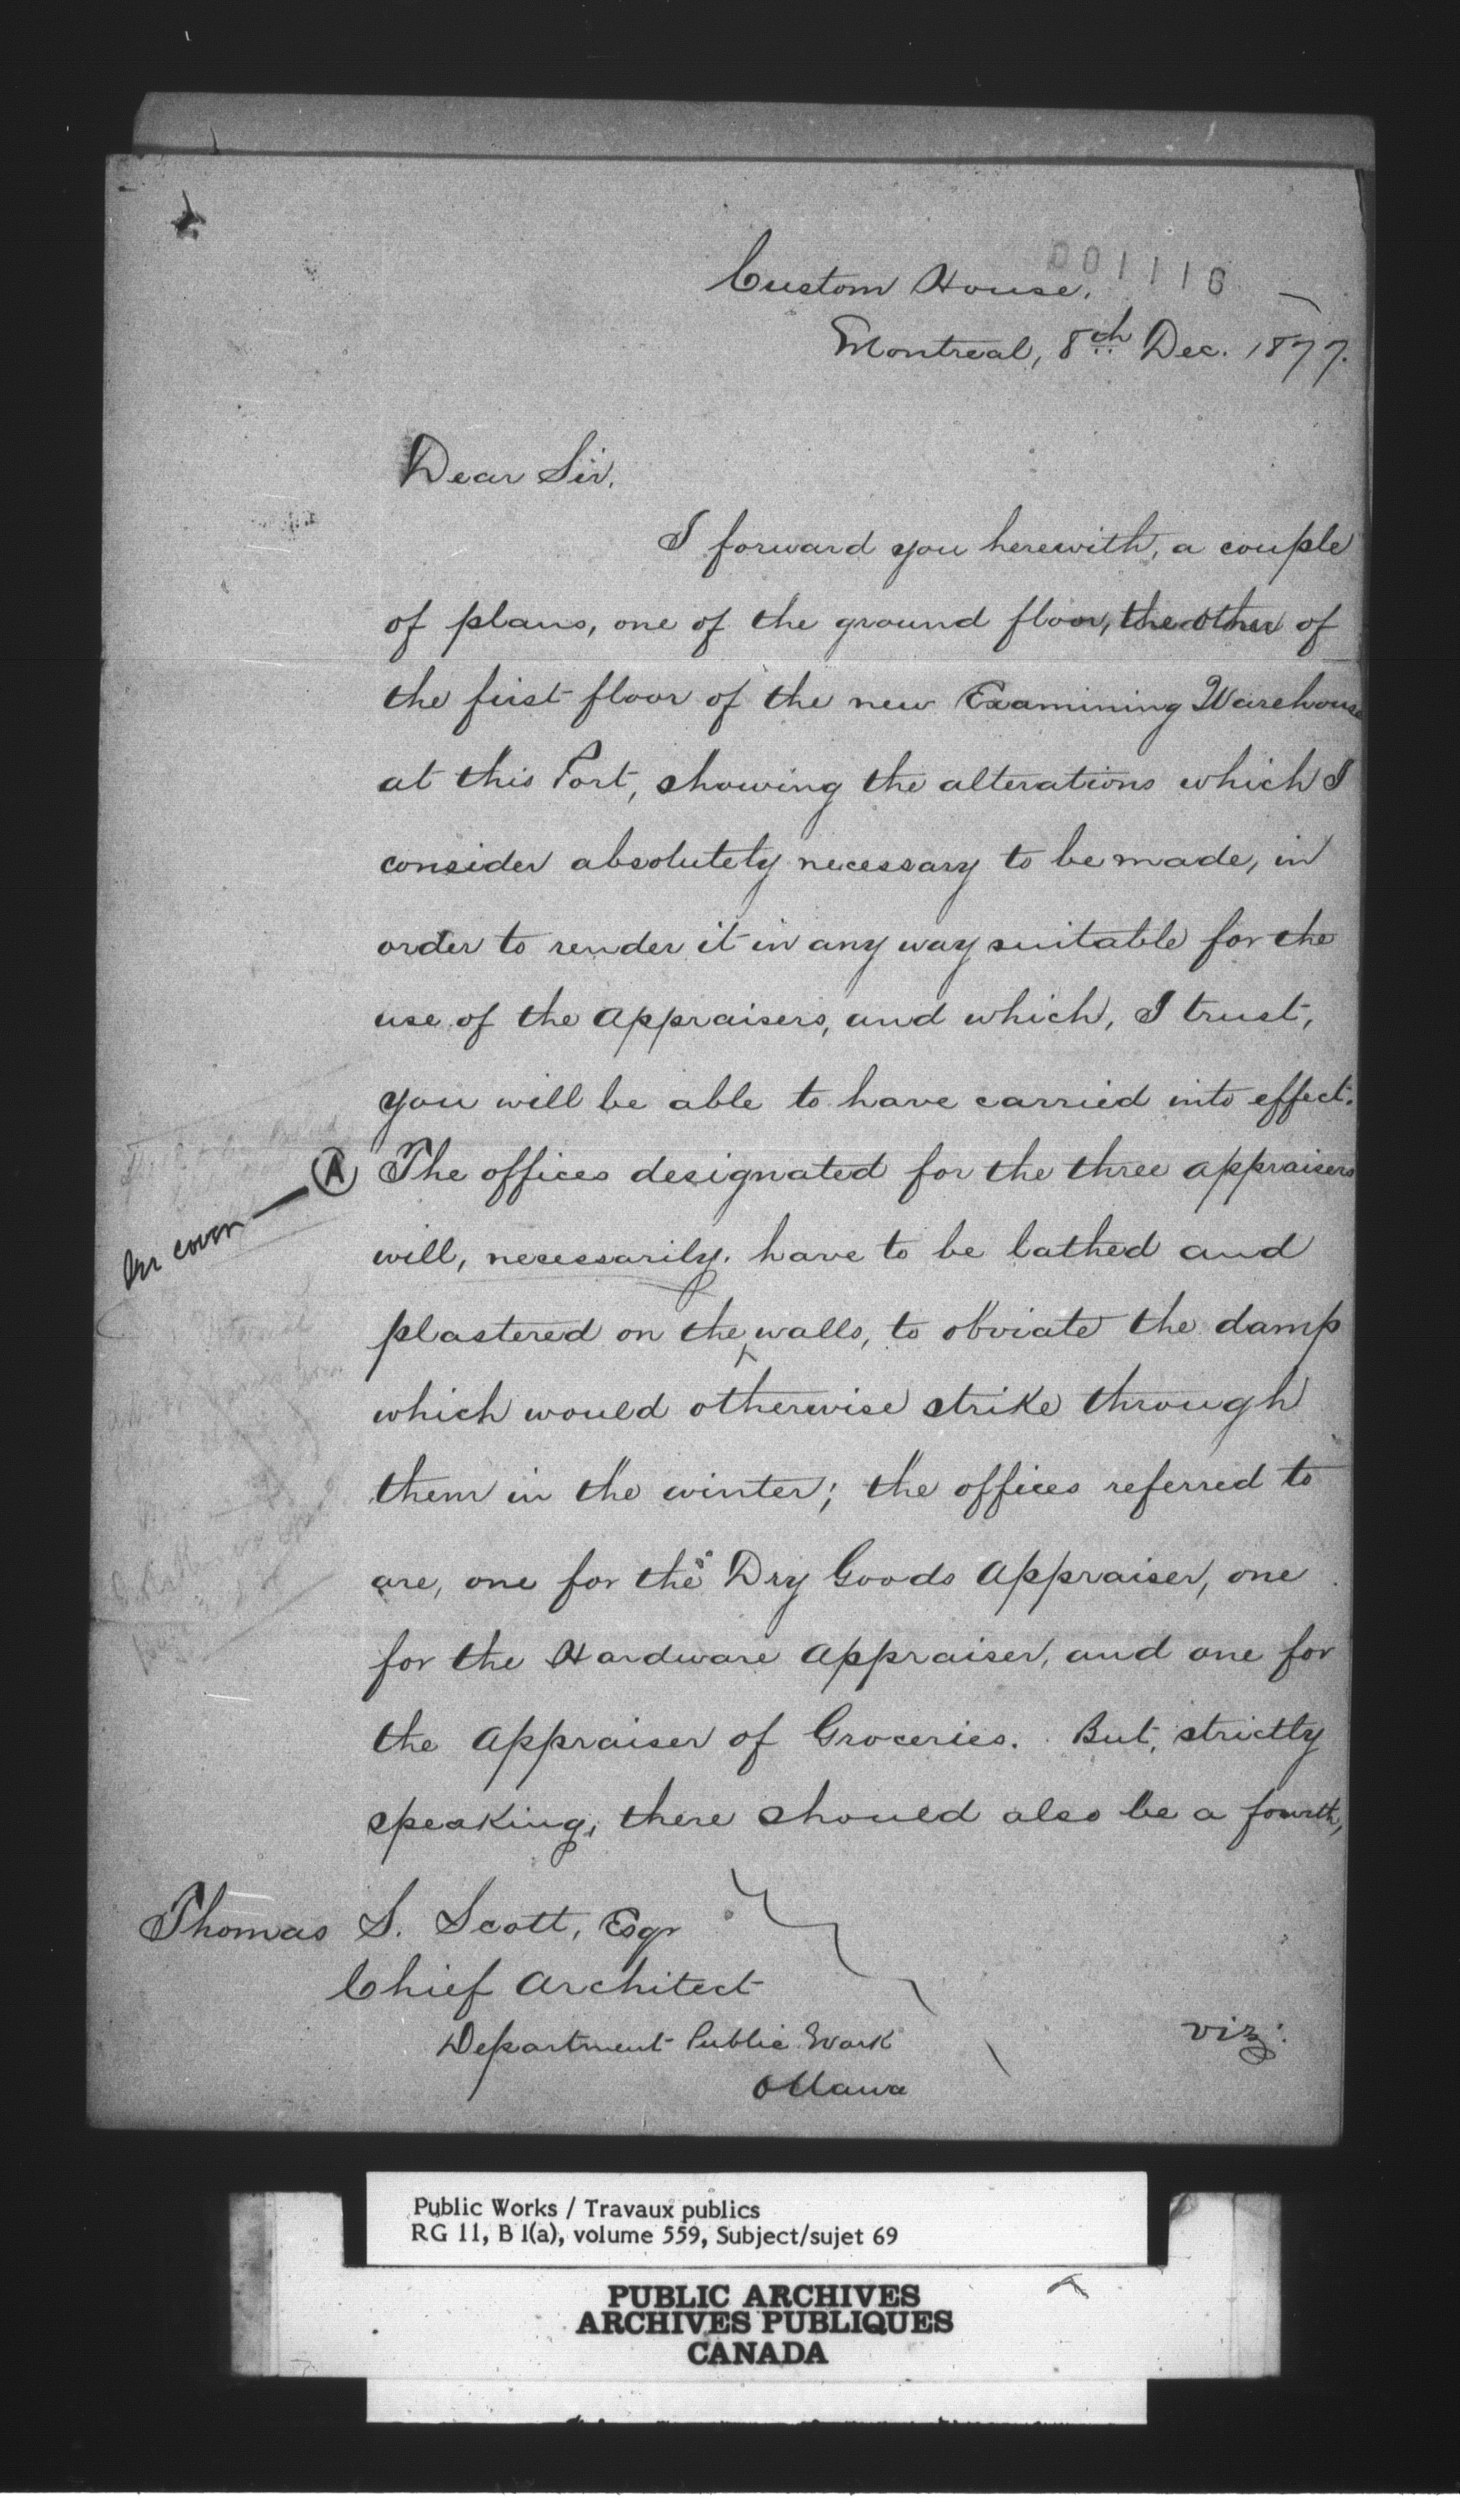 001116
Custom House,
Montreal, 8th Dec. 1877.
Dear Sir,
I forward you herewith, a couple
of plans, one of the ground floor, the other of
the first floor of the new Examining Warehouse
at this Port, showing the alterations which I
consider absolutely necessary to be made, in
order to render it in any way suitable for the
use of the Appraisers, and which, I trust,
you will be able to have carried into effect.
A The offices designated for the three appraisers
will, necessarily, have to be lathed and
plastered on the walls, to obviate the damp
which would otherwise strike through
them in the winter; the offices referred to
are, one for the Dry Goods Appraiser, one
for the Hardware Appraiser, and one for
the Appraiser of Groceries. But, strictly
speaking, there should also be a fourth,
Thomas S. Scott, Esqr
Chief Architect
Department Public Work
Ottawa
viz:
Public Works / Travaux publics
RG 11, B 1(a), volume 559, Subject/sujet 69
PUBLIC ARCHIVES
ARCHIVES PUBLIQUES
CANADA